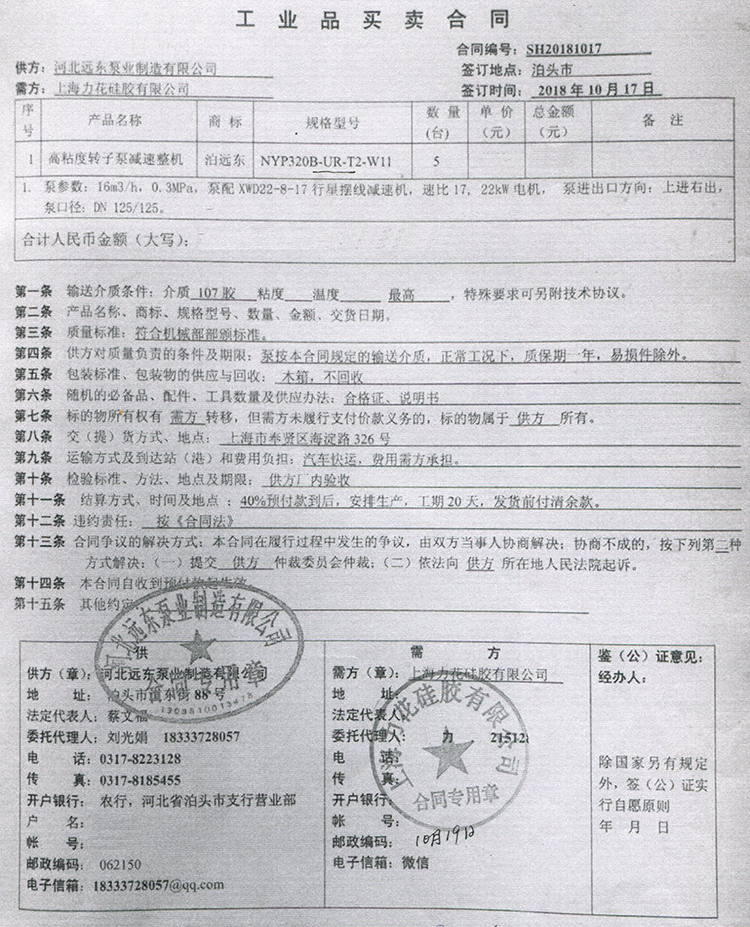 工业品买卖合同
合同编号：SH20181017
供方：河北远东泵业制造有限公司
签订地点：泊头市
需方：上海力花硅胶有限公司
签订时间：2018年10月17日
序号 产品名称 商标 规格型号 数量（台） 单价（元） 总金额（元） 备注
1 高粘度转子泵减速整机 泊远东 NYP320B-UR-T2-W11 5
1. 泵参数：16m3/h，0.3MPa，泵配 XWD22-8-17 行星摆线减速机，速比 17，22kW 电机， 泵进出口方向：上进右出，
泵口径：DN 125/125。
合计人民币金额（大写）：
第一条 输送介质条件：介质 107胶 粘度 温度 最高 ，特殊要求可另附技术协议。
第二条 产品名称、商标、规格型号、数量、金额、交货日期。
第三条 质量标准：符合机械部部颁标准。
第四条 供方对质量负责的条件及期限：泵按本合同规定的输送介质，正常工况下，质保期一年，易损件除外。
第五条 包装标准、包装物的供应与回收： 木箱，不回收
第六条 随机的必备品、配件、工具数量及供应办法：合格证、说明书
第七条 标的物所有权有 需方 转移，但需方未履行支付价款义务的，标的物属于 供方 所有。
第八条 交（提）货方式、地点： 上海市奉贤区海淀路 326 号
第九条 运输方式及到达站（港）和费用负担：汽车快运，费用需方承担。
第十条 检验标准、方法、地点及期限： 供方厂内验收
第十一条 结算方式、时间及地点 ：40%预付款到后，安排生产，工期 20 天，发货前付清余款。
第十二条 违约责任： 按《合同法》
第十三条 合同争议的解决方式：本合同在履行过程中发生的争议，由双方当事人协商解决；协商不成的，按下列第二种
方式解决：（一）提交 供方 仲裁委员会仲裁；（二）依法向 供方 所在地人民法院起诉。
第十四条 本合同自收到预付款起生效
第十五条 其他约定
供
供方（章）：河北远东泵业制造有限公司
地 址： 88号
法定代表人：蔡文福
委托代理人：刘光娟 18333728057
电 话：0317-8223128
传 真：0317-8185455
开户银行： 农行，河北省泊头市支行营业部
户 名：
帐 号：
邮政编码： 062150
电子信箱：18333728057@qq.com
河北远东泵业制造有限公司
合同专用章
需方
需方（章）：上海力花硅胶有限公司
地 址
法定代表人
委托代理人： 力 21512
电 话：
传 真
开户银行
帐 号：
邮政编码： 10月19日
电子信箱：微信
上海力花硅胶有限公司
合同专用章
鉴（公）证意见：
经办人：
除国家另有规定
外，签（公）证实
行自愿原则
年 月 日